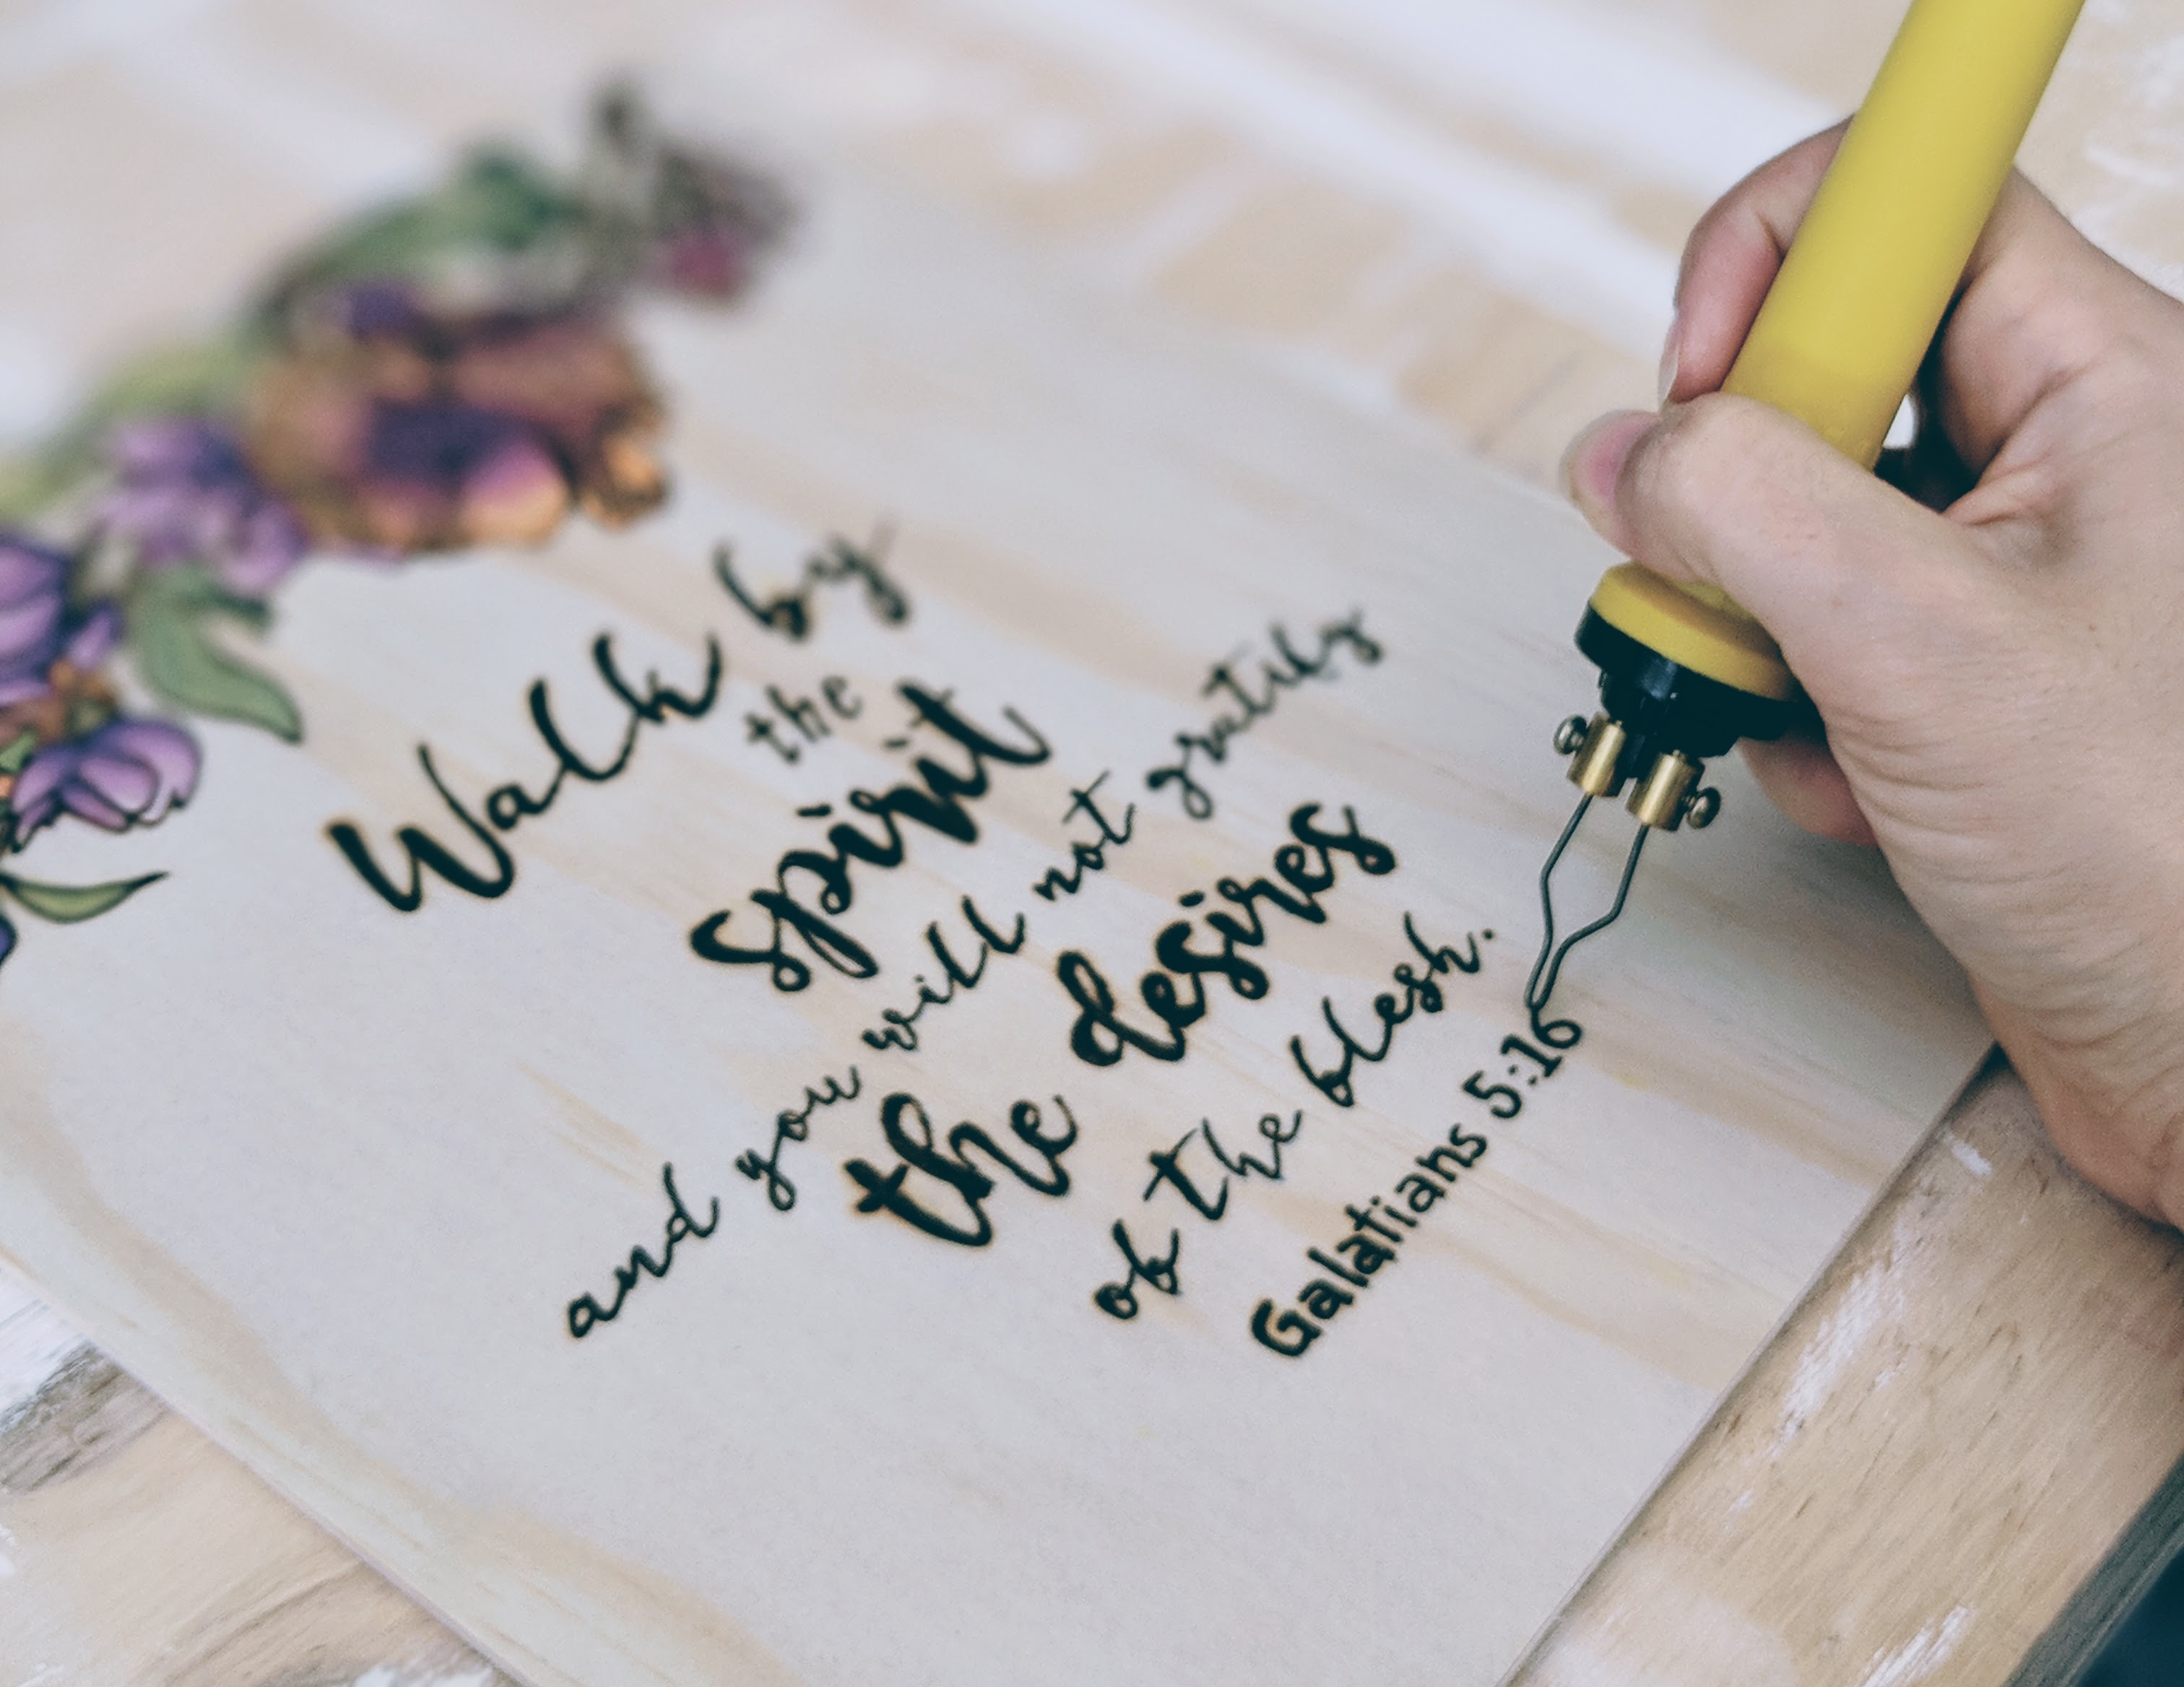 Walk by
the
spirit
and you will not gratify
the desires
of the flesh.
Galatians 5:16